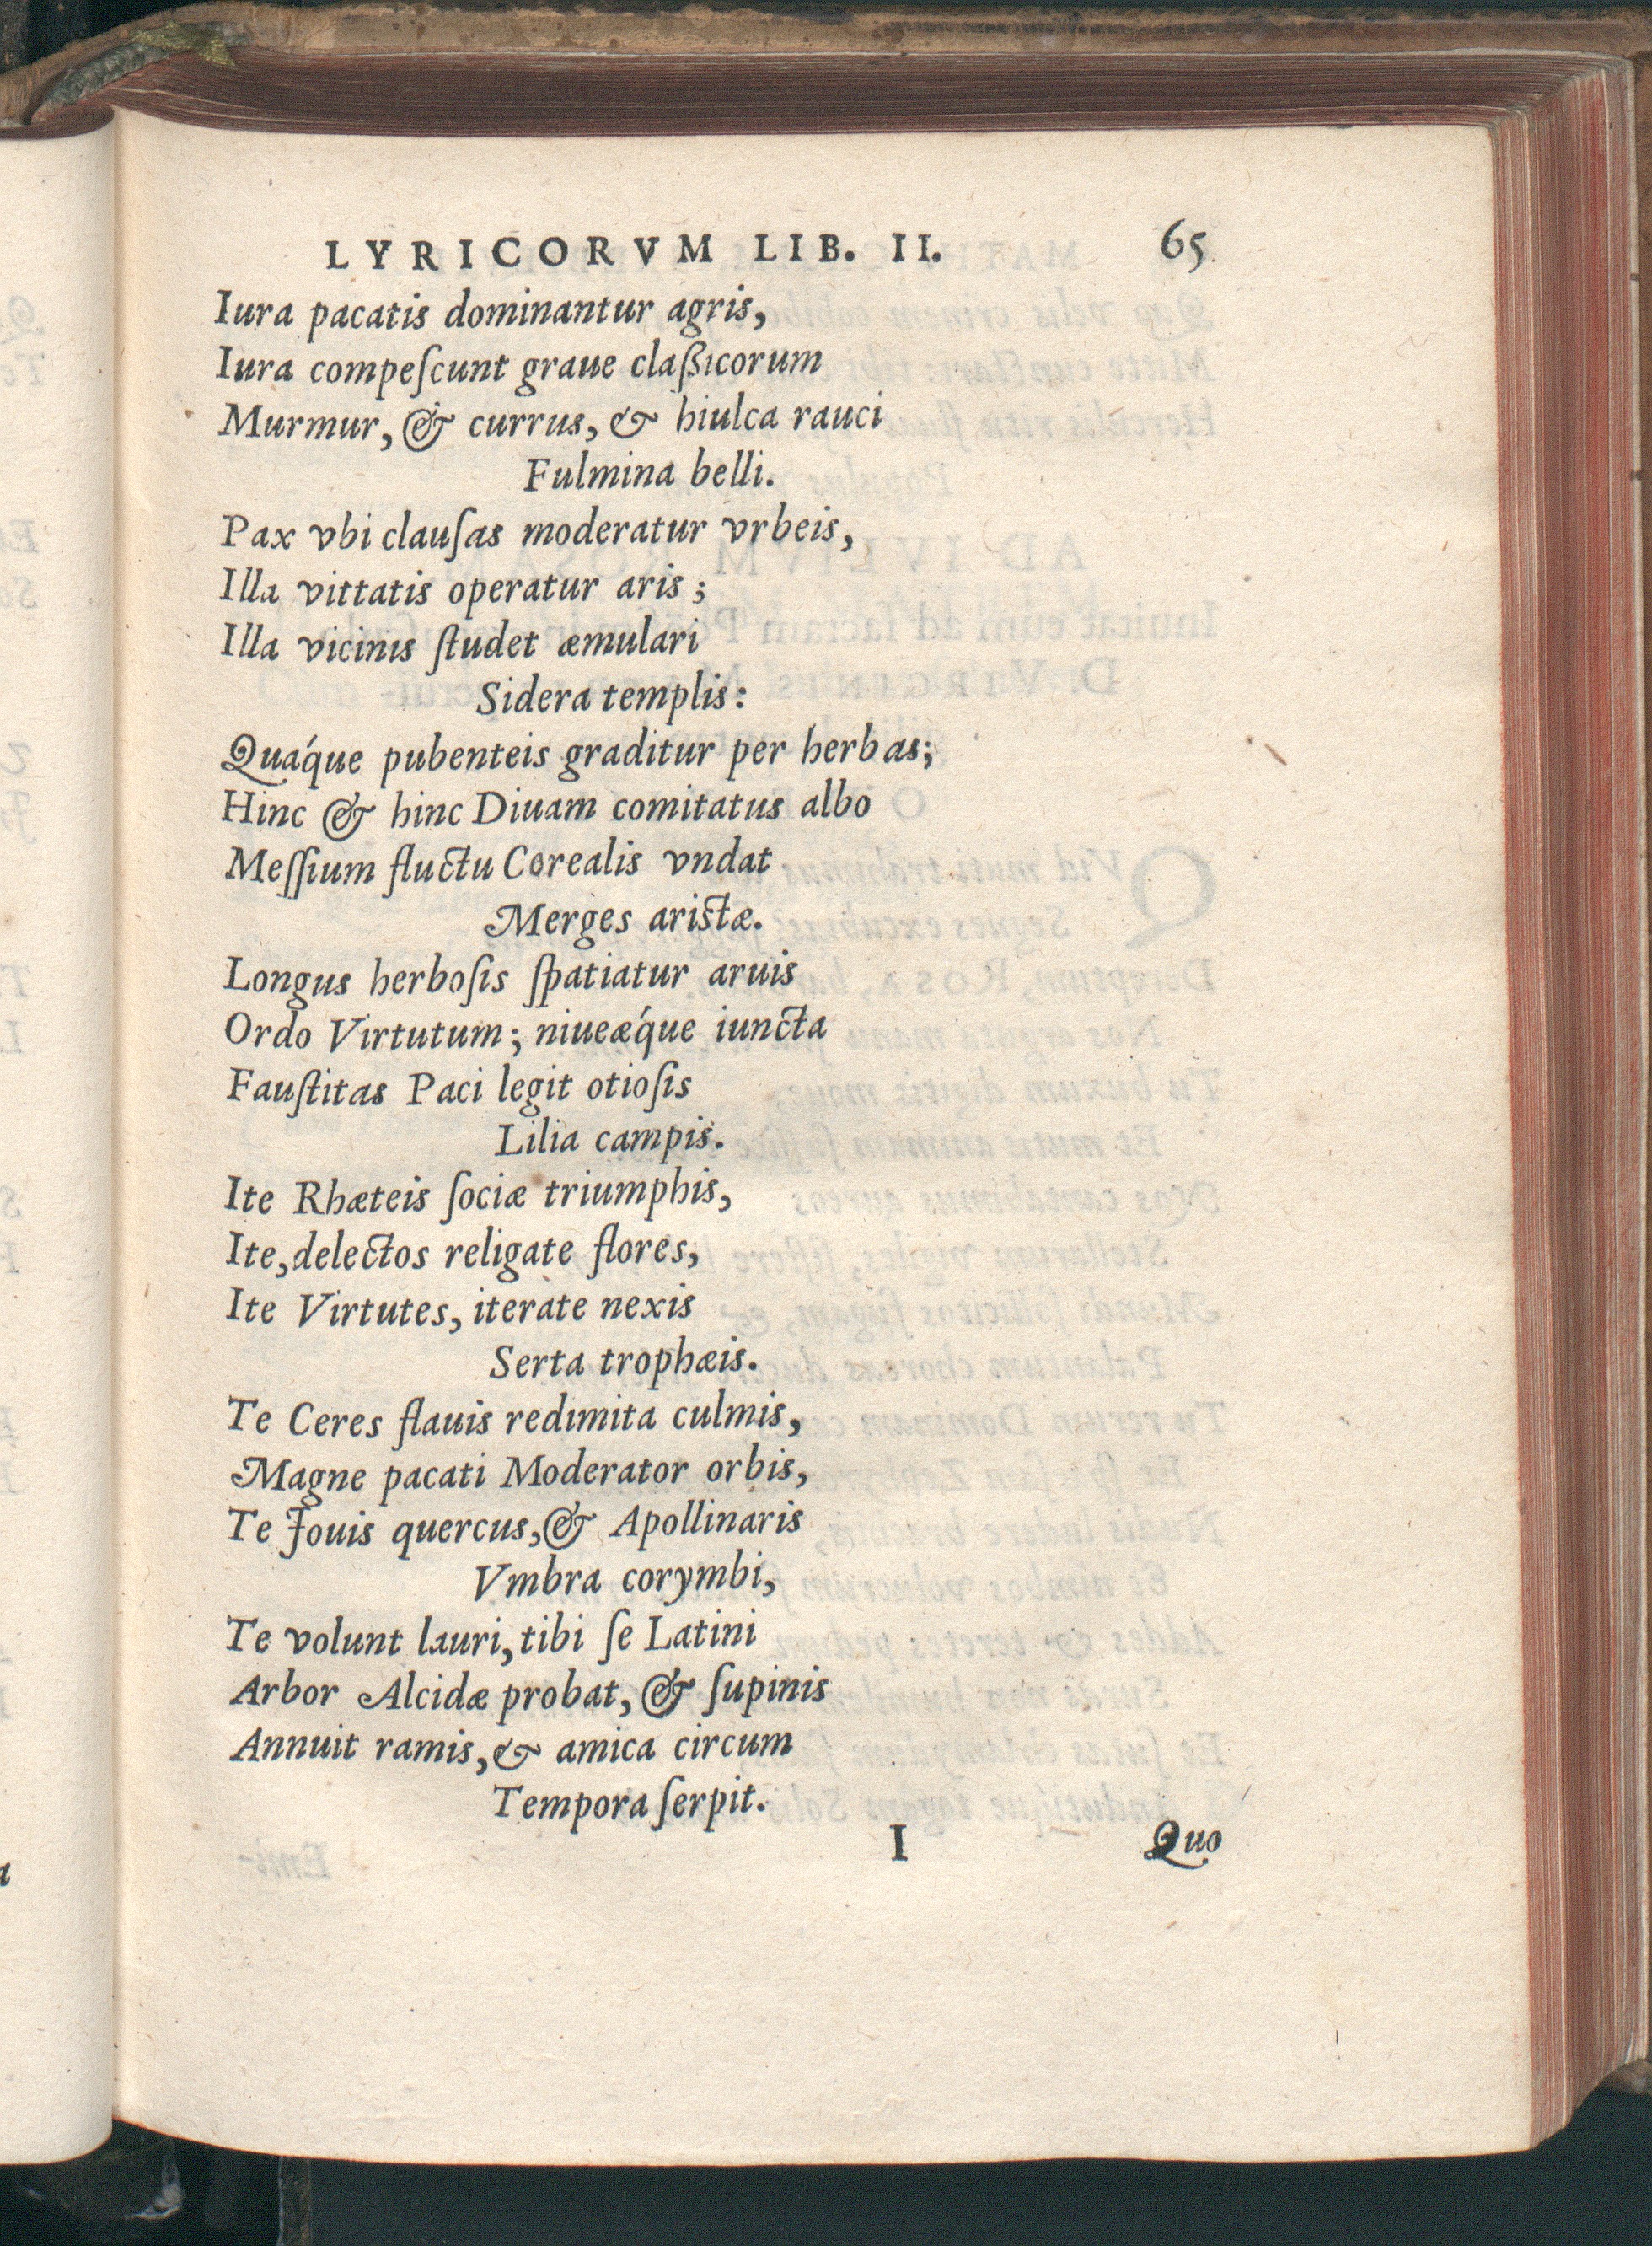 LYRICORVM LIB. II. 65
Iura pacatis dominantur agris,
Iura compeſcunt graue claßicorum
Murmur, & currus, & hiulca rauci
Fulmina belli.
Pax vbi clauſas moderatur vrbeis,
Illa vittatis operatur aris;
Illa vicinis ſtudet æmulari
Sidera templis:
Quáque pubenteis graditur per herbas;
Hinc & hinc Diuam comitatus albo
Meſſium fluctu Corealis vndat
Merges aristæ.
Longus herboſis ſpatiatur aruis
Ordo Virtutum; niueǽque iuncta
Fauſtitas Paci legit otioſis
Lilia campis.
Ite Rhæteis ſociæ triumphis,
Ite, delectos religate flores,
Ite Virtutes, iterate nexis
Serta trophæis.
Te Ceres flauis redimita culmis,
Magne pacati Moderator orbis,
Te Jouis quercus, & Apollinaris
Vmbra corymbi,
Te volunt lauri, tibi ſe Latini
Arbor Alcidæ probat, & ſupinis
Annuit ramis, & amica circum
Tempora ſerpit.
I Quo